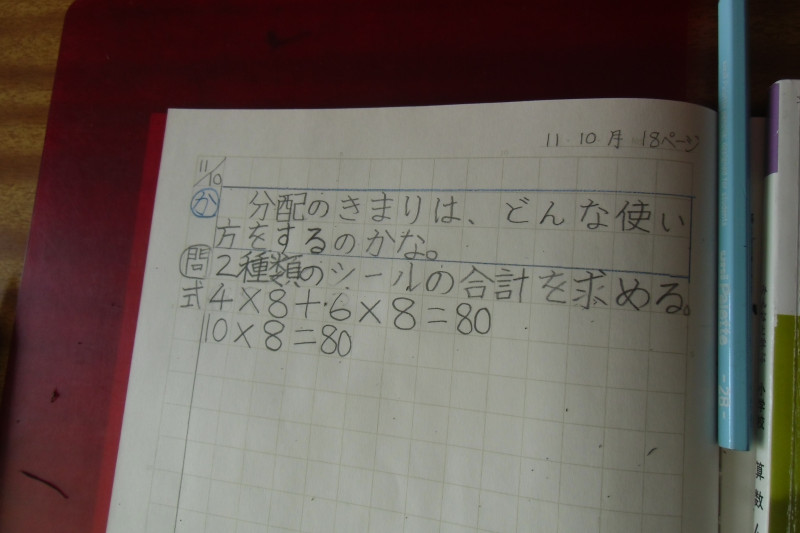 11 10 月 18ページ
11/10
か 分配のきまりは、どんな使い
方をするのかな。
問 2種類のシールの合計を求める。
式 4×8+6×8=80
10×8=80
-2B-
算数